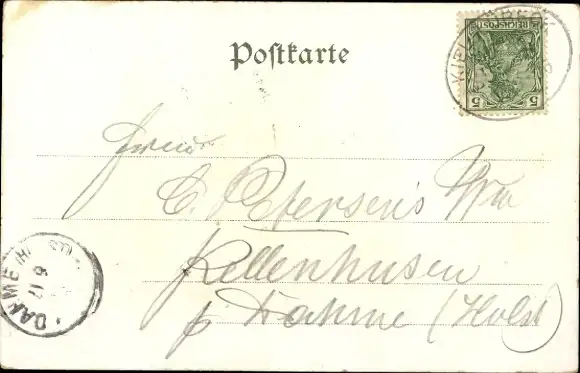 Postkarte
REICHSPOST
5 5
C. Petersen's Ww
Kellenhusen
p Dahme (Holst)
DAHME